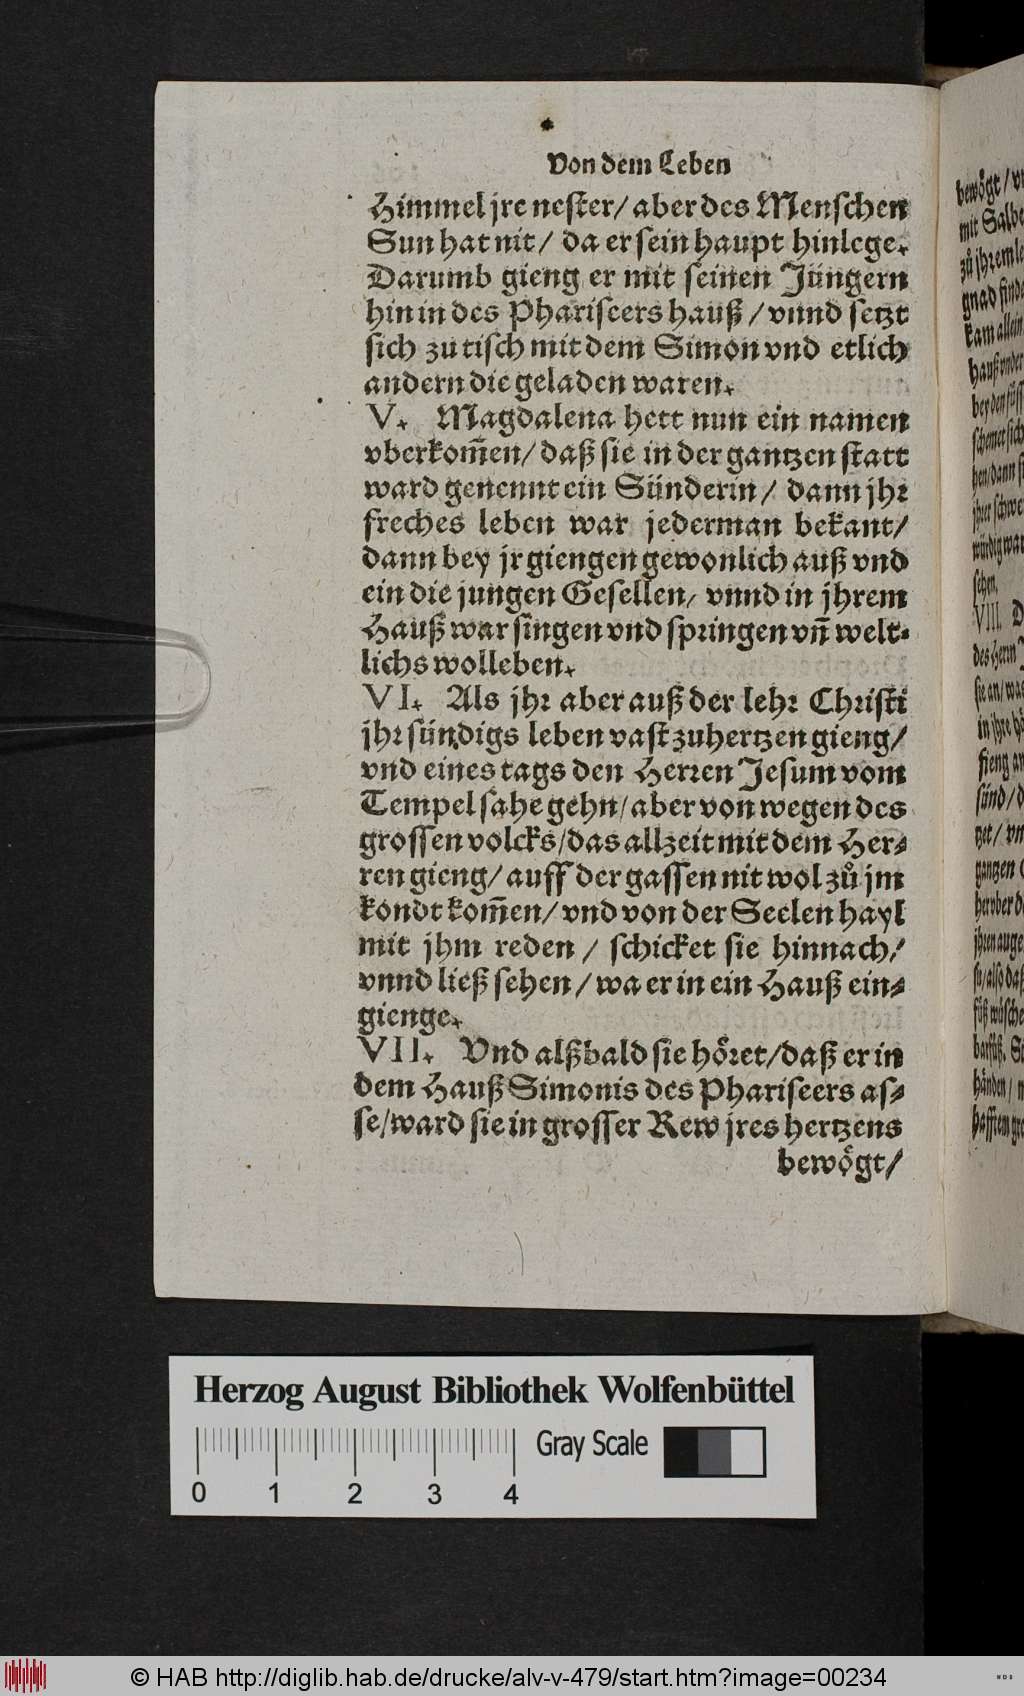 Von dem Leben
Himmel jre nester/ aber des Menschen
Sun hat nit/ da er sein haupt hinlege.
Darumb gieng er mit seinen Jüngern
hin in des Phariseers hauß/ vnnd setzt
sich zu tisch mit dem Simon vnd etlich
andern die geladen waren.
V. Magdalena hett nun ein namen
vberkom̄en/ daß sie in der gantzen statt
ward genennt ein Sünderin/ dann jhr
freches leben war jederman bekant/
dann bey jr giengen gewonlich auß vnd
ein die jungen Gesellen/ vnnd in jhrem
Hauß war singen vnd springen vn̄ welt-
lichs wolleben.
VI. Als jhr aber auß der lehr Christi
jhr sündigs leben vast zuhertzen gieng/
vnd eines tags den Herren Jesum vom
Tempel sahe gehn/ aber von wegen des
grossen volcks/ das allzeit mit dem Her-
ren gieng/ auff der gassen nit wol zů jm
kondt kom̄en/ vnd von der Seelen hayl
mit jhm reden/ schicket sie hinnach/
vnnd ließ sehen/ wa er in ein Hauß ein-
gienge.
VII. Vnd alßbald sie höret/ daß er in
dem Hauß Simonis des Phariseers as-
se/ ward sie in grosser Rew jres hertzens
bewögt/
bewögt/
mit Salbe
zů jhrem
gnad
kam allein
VIII.
des Herrn
sie an/
in jhre
fieng an
sünd/
gantzen
also daß
händen/
Herzog August Bibliothek Wolfenbüttel
0 1 2 3 4
Gray Scale
© HAB http://diglib.hab.de/drucke/alv-v-479/start.htm?image=00234